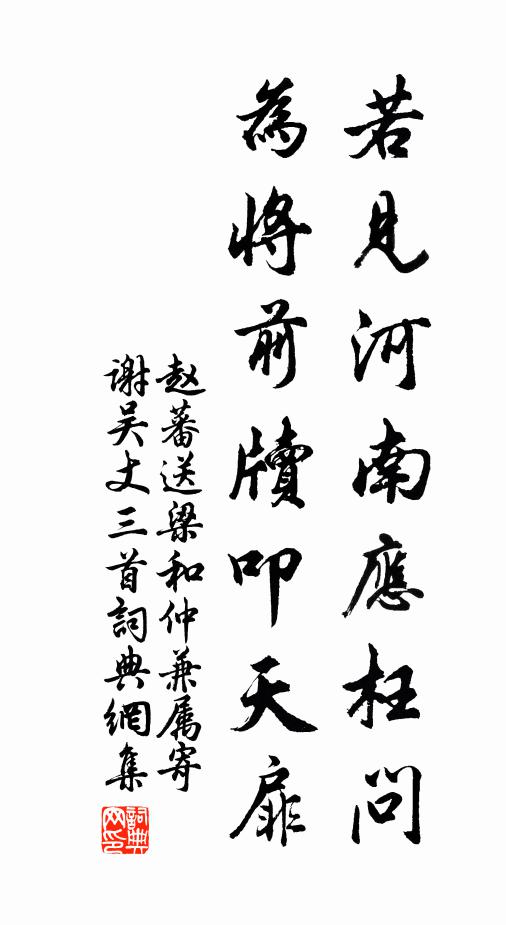 若見河南應枉問
為將前牘叩天扉
赵蕃送梁和仲兼属寄
谢吴丈三首詞典網集
詞典
网印